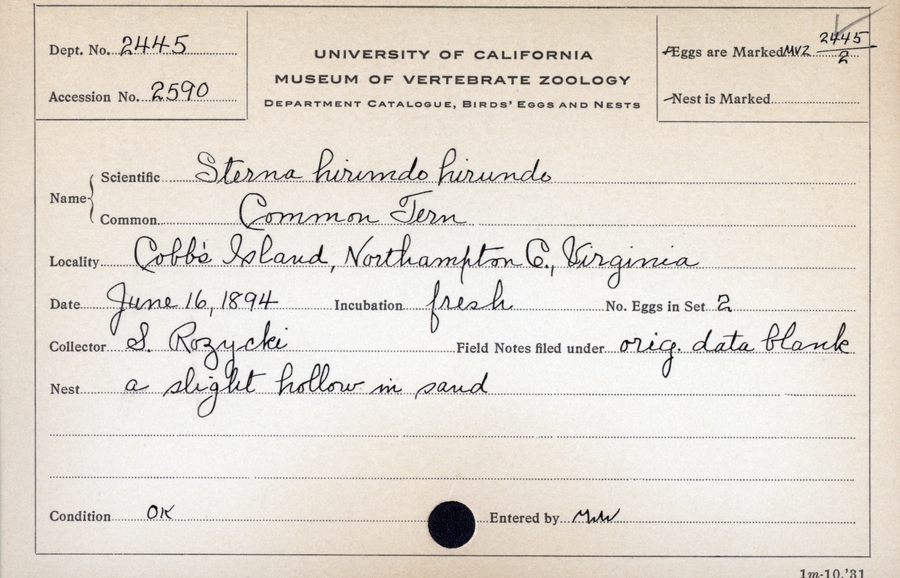 Dept. No. 2445
Accession No. 2590
UNIVERSITY OF CALIFORNIA
MUSEUM OF VERTEBRATE ZOOLOGY
DEPARTMENT CATALOGUE, BIRDS' EGGS AND NESTS
Eggs are Marked MVZ 2445/2
Nest is Marked
Name
Scientific Sterna hirundo hirundo
Common Common Tern
Locality Cobb's Island, Northampton C., Virginia
Date June 16, 1894 Incubation fresh No. Eggs in Set 2
Collector S. Rozycki Field Notes filed under orig. data blank
Nest a slight hollow in sand
Condition OK Entered by
1m-10,'31